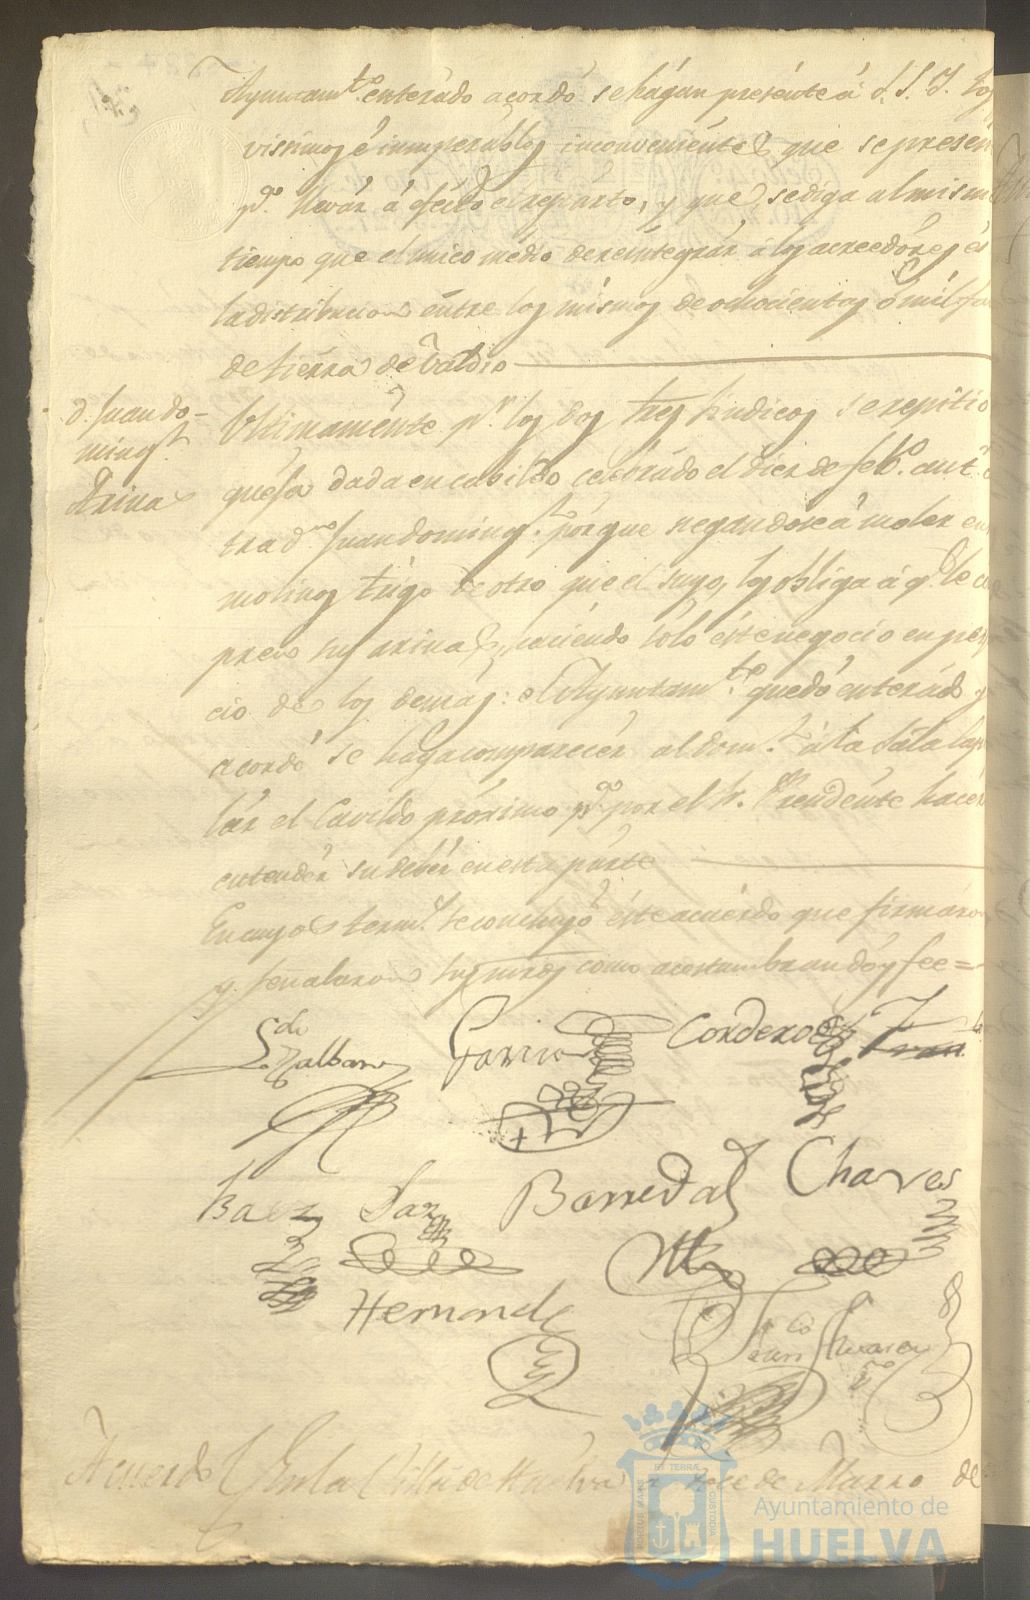 Ayuntam.to enterado acordó se hágan presénte á S. S. Y. los
visímos é insuperábles inconveniéntes que se presén
p.a llevár á efécto el repárto, y que se diga al mism
tiempo que el único médio de reintegrár á los acreedóres és
la distribucion éntre los mísmos de ochociéntas ó mil fa
de tiérra de Valdio
D. Juan do-
ming.z
Arina
Ultimaménte p.r los dos Sres Sindicos se repitió
quéja dada en cabildo celebrádo el diez de feb.o ant.
tra d.n Juan doming.z pórque negandose á moler en
molinos trigo de otro que el suyo, los obliga á q.e le
precio sus arinas, haciéndo sólo éste negocio en per
cio de los demás: el Ayuntam.to quedó enterádo y
acordó se haga comparecér al dom.z á la Sála
lár el Cavildo próximo p.a por el Sr. Presidénte hacér
entendér su debér en esta párte
En cuyos term.s se concluyó éste acuérdo que firmáron
y señalaron sus mrds como acostumbran dóy fee =
L.do Zalbar Garcia Cordero
Baez Saz Barreda Chaves
Hernande
Suarez
Acuerdo En la Villa de Huelva a trece de Marzo de
PORTUS MARIS ET TERRAE CUSTODIA
Ayuntamiento de
HUELVA